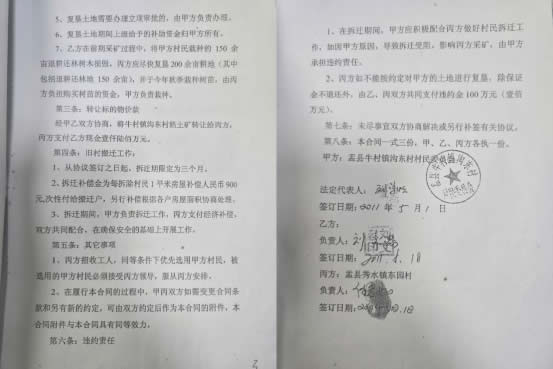 5、复垦土地需要办理立项审批的，由甲方负责办理。
6、复垦土地期间上级给予的补助资金归甲方所有。
7、乙方在前期采矿过程中，将甲方村民栽种的 150 余
亩退耕还林树木损毁，丙方应尽快复垦 200 余亩耕地（其中
包括退耕还林地 150 余亩），并于今年秋季栽种树苗，由丙
方负担购买树苗的资金，甲方负责栽种。
第三条：转让标的物价款
经甲乙双方协商，将牛村镇沟东村粘土矿转让给丙方，
丙方支付乙方现金壹仟陆佰万元。
第四条：旧村搬迁工作：
1、从协议签订之日起，拆迁期限定为三个月。
2、拆迁补偿金为每拆除村民 1 平米房屋补偿人民币 900
元，一次性付给搬迁户，另行补偿根据各户房屋面积协商处理。
3、拆迁期间，甲方负责拆迁工作，丙方支付经济补偿，
双方共同配合，在确保安全的基础上开展工作。
第五条：其它事项
1、丙方招收工人，同等条件下优先选用甲方村民，被
选用的甲方村民必须接受丙方领导，服从丙方安排。
2、在履行本合同的过程中，甲丙双方如需变更合同条
款和另有新的约定，可由双方约定后作为本合同的附件，本
合同附件与本合同具有同等效力。
第六条：违约责任
3
1、在拆迁期间，甲方应积极配合丙方做好村民拆迁工
作，如因甲方原因，导致拆迁受阻，影响丙方采矿，由甲方
承担违约责任。
2、丙方如不能按约定对甲方的土地进行复垦，除保证
金不退还外，由乙、丙双方共同支付违约金 100 万元（壹佰
万元）。
第七条：未尽事宜双方协商解决或另行补签有关协议。
第八条：本合同一式三份，甲、乙、丙方各执一份。
甲方：盂县牛村镇沟东村村民
法定代表人：
签订日期：2011 年 5 月 1 日
乙方：
负责人：
签订日期：
丙方：盂县秀水镇东园村
负责人：
签订日期：